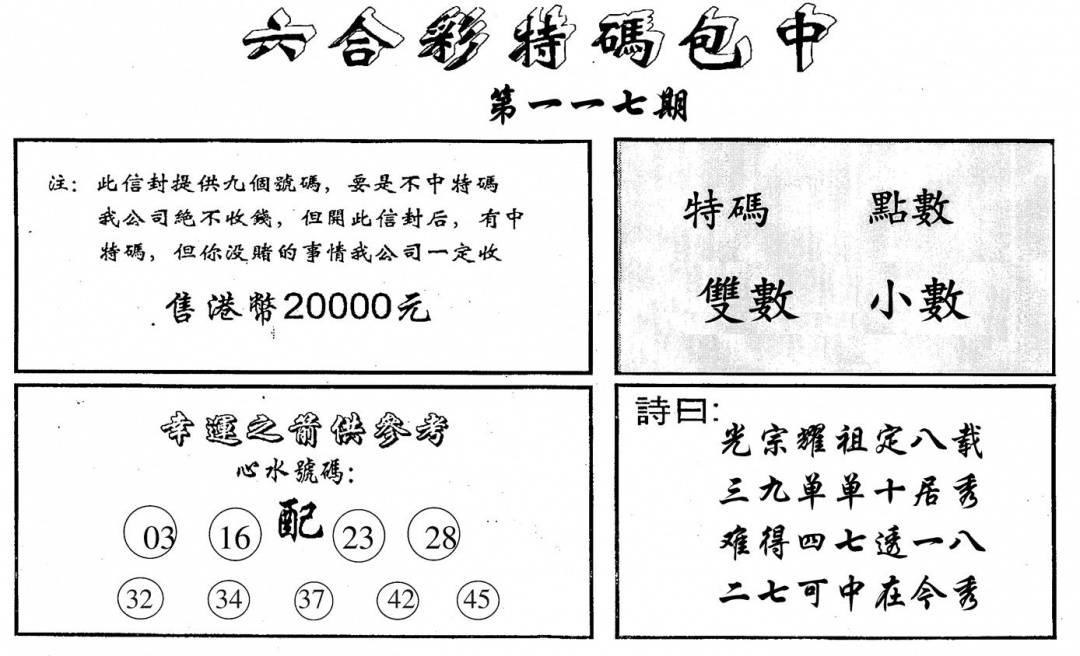 六合彩特碼包中
第一一七期
注：此信封提供九個號碼，要是不中特碼
我公司絕不收錢，但開此信封后，有中
特碼，但你没賭的事情我公司一定收
售港幣20000元
特碼 點數
雙數 小數
幸運之箭供參考
心水號碼：
配
03 16 23 28
32 34 37 42 45
詩曰：
光宗耀祖定八载
三九单单十居秀
难得四七透一八
二七可中在今秀